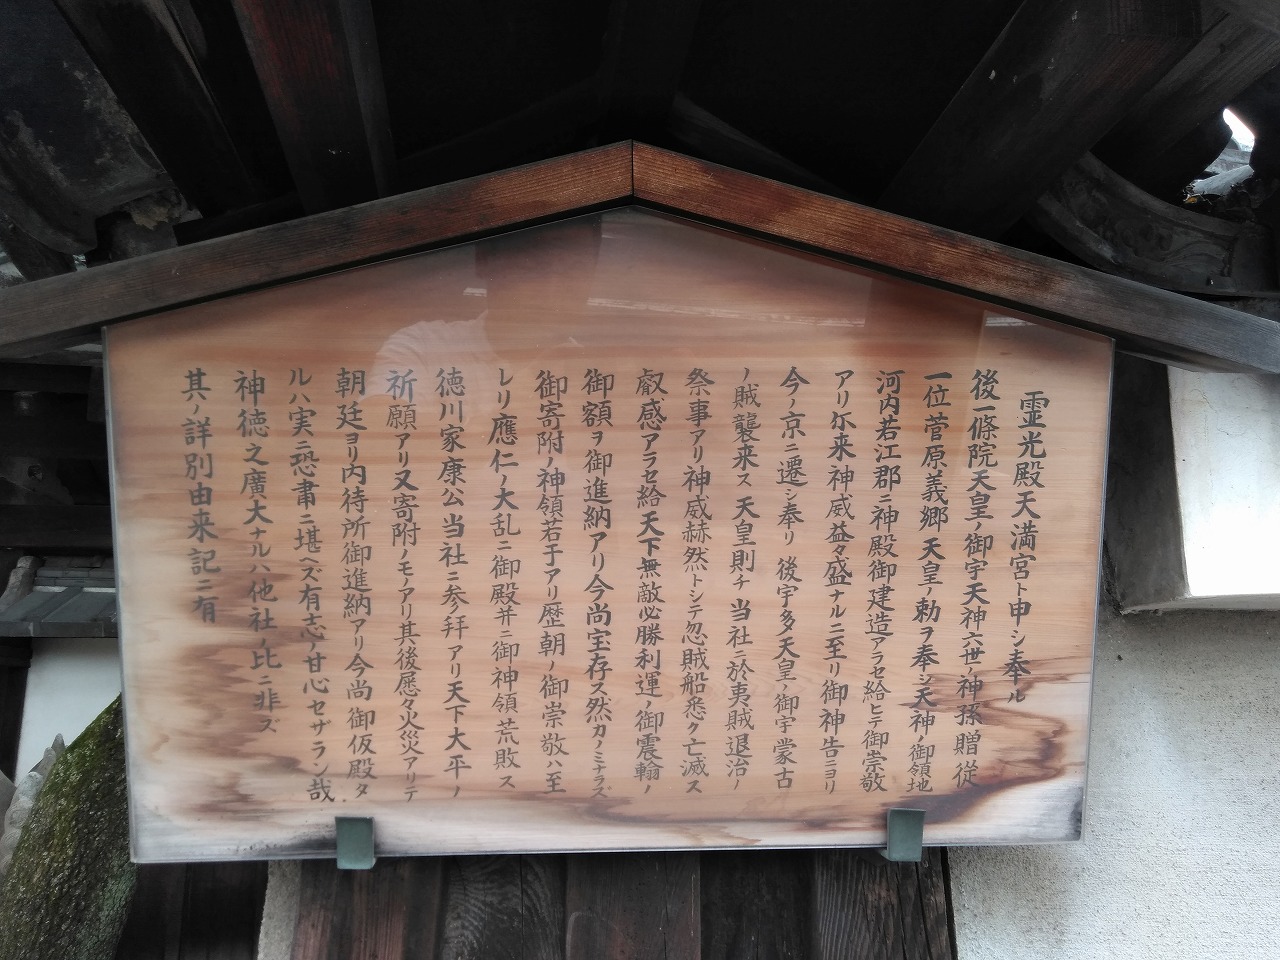 霊光殿天満宮ト申シ奉ル
後一條院天皇ノ御宇天神六世ノ神孫贈從
一位菅原義郷天皇ノ勅ヲ奉シ天神ノ御領地
河内若江郡ニ神殿御建造アラセ給ヒテ御崇敬
アリ尓来神威益々盛ナルニ至リ御神告ニヨリ
今ノ京ニ遷シ奉リ後宇多天皇ノ御宇蒙古
ノ賊襲来ス天皇則チ当社ニ於夷賊退治ノ
祭事アリ神威赫然トシテ忽賊船悉ク亡滅ス
叡感アラセ給天下無敵必勝利運ノ御震翰ノ
御額ヲ御進納アリ今尚宝存ス然カノミナラズ
御寄附ノ神領若干アリ歴朝ノ御崇敬ハ至
レリ應仁ノ大乱ニ御殿并ニ御神領荒敗ス
徳川家康公当社ニ参拜アリ天下大平ノ
祈願アリ又寄附ノモノアリ其後屡々火災アリテ
朝廷ヨリ内待所御進納アリ今尚御仮殿タ
ルハ実ニ恐肅ニ堪ヘズ有志ノ甘心セザラン哉
神徳之廣大ナルハ他社ノ比ニ非ズ
其ノ詳別由来記ニ有